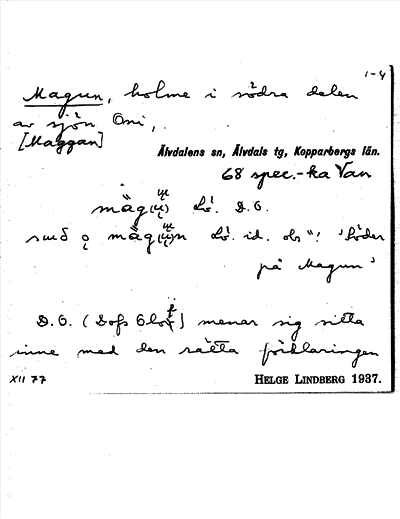 1-4
Magun, holme i södra delen
av sjön Oni,
[Maggan]
Älvdalens sn, Älvdals tg, Kopparbergs län.
68 spec.-ka Van
D. O.
id. obs "! 'Söder
på Magun'
D. O. (Dofs Olof) menar sig sitta
inne med den rätta förklaringen
XII 77
HELGE LINDBERG 1937.